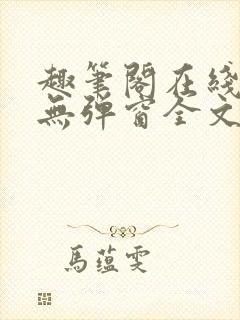 趣筆閣在綫
無彈窗全文
馬蕴雯